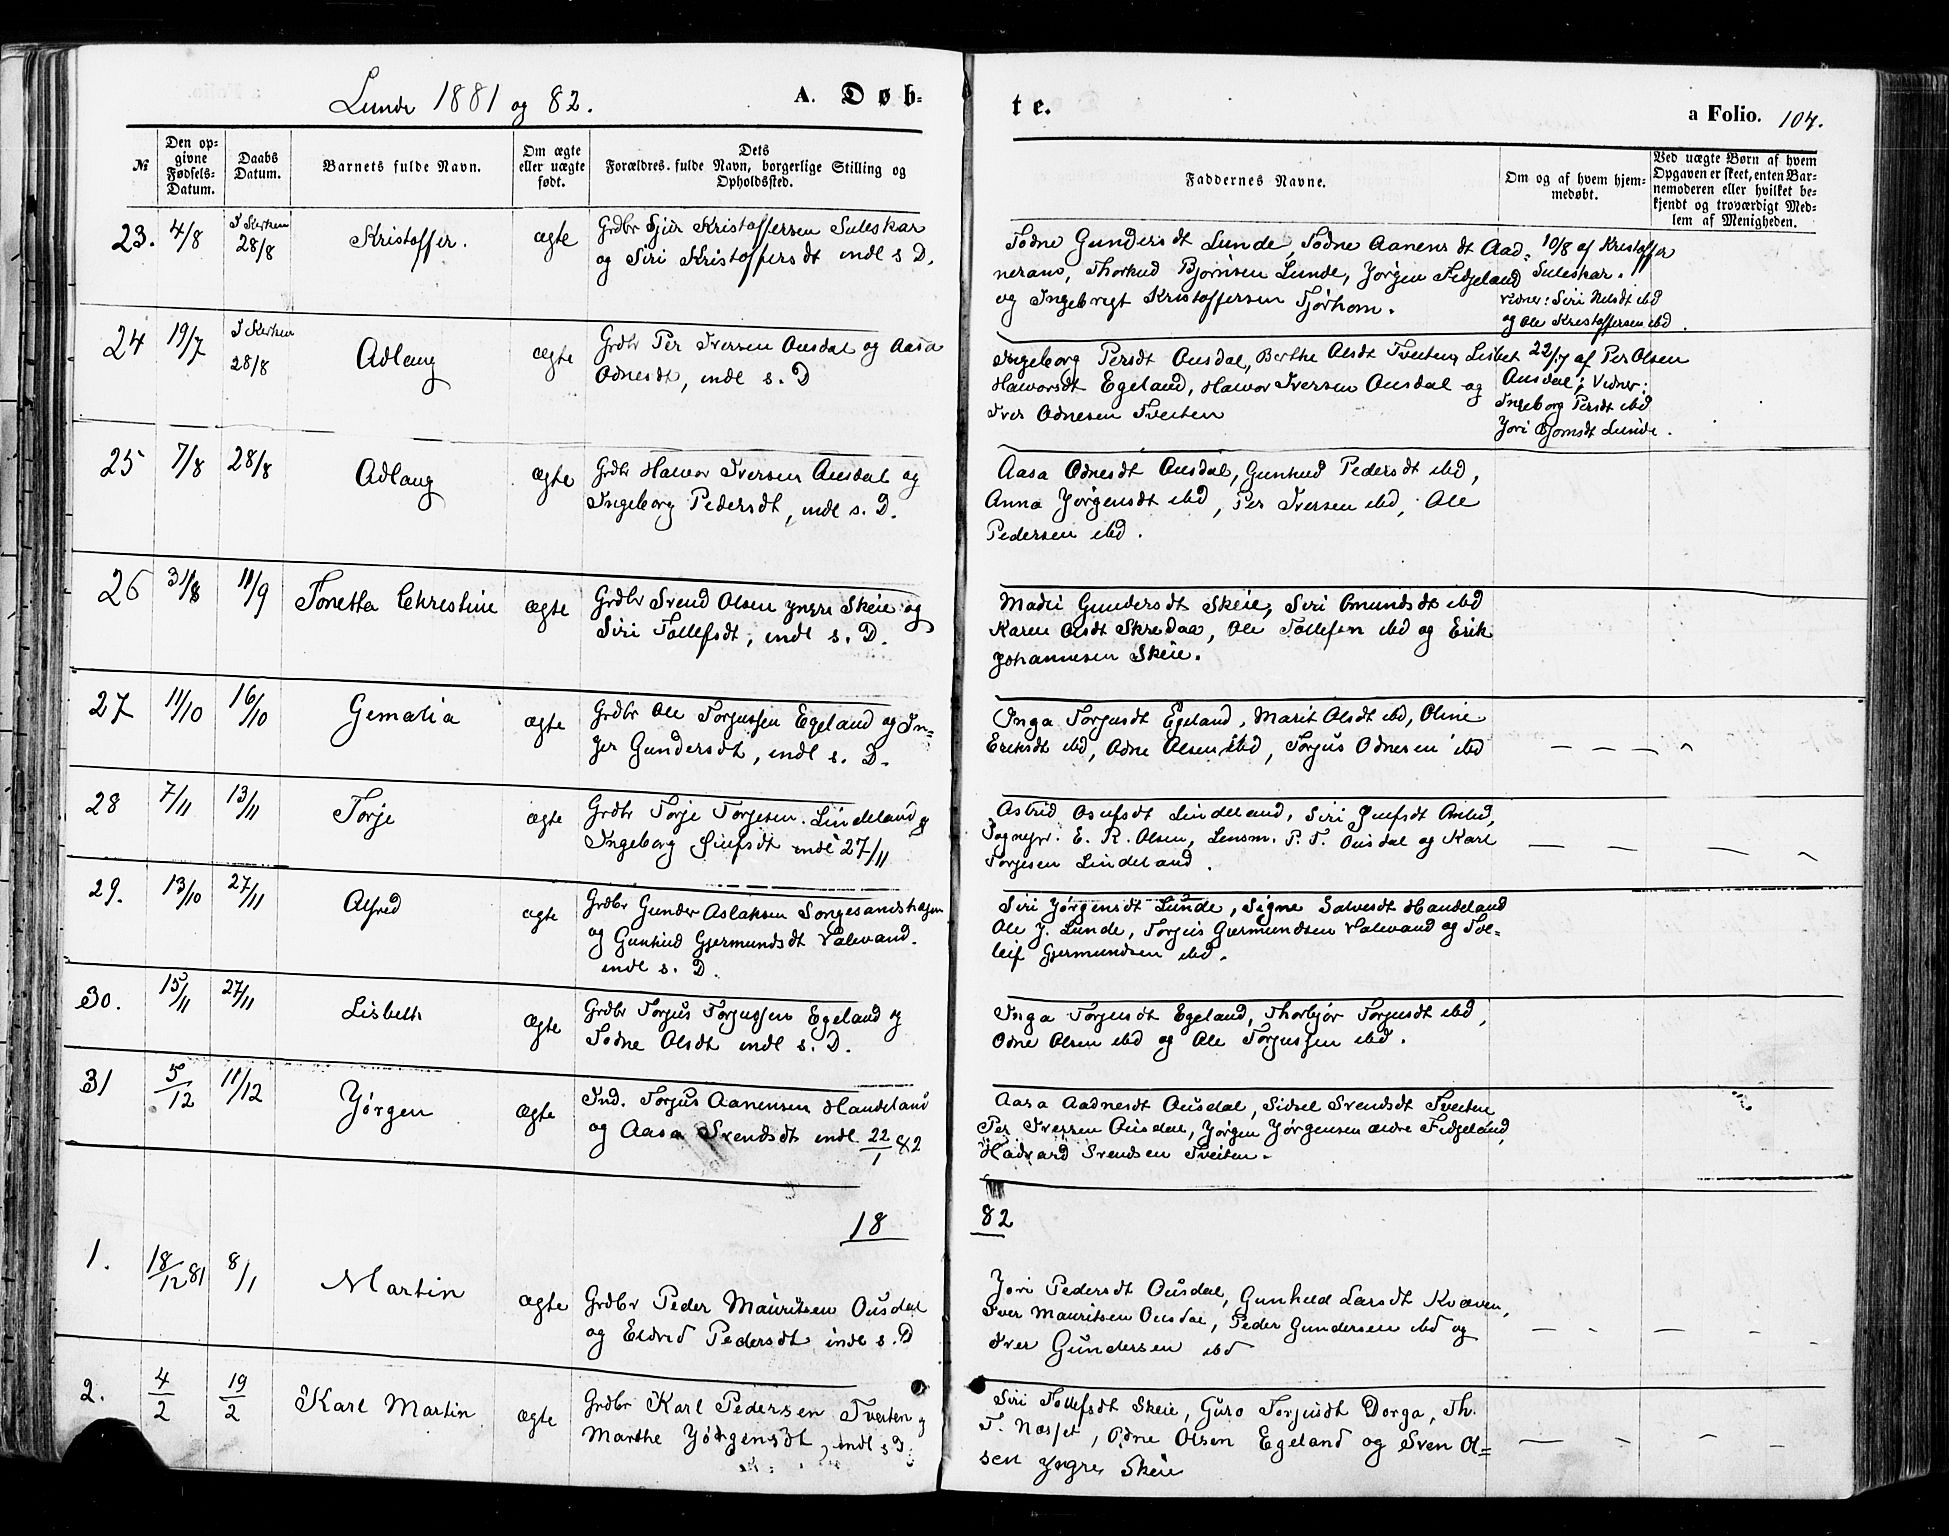 Lunde 1881 og 82.
A. Døb-
te.
a Folio. 104.
№
Den op-
givne
Fødsels-
Datum.
Daabs
Datum.
Barnets fulde Navn.
Om ægte
eller uægte
født.
Dets
Forældres fulde Navn, borgerlige Stilling og
Opholdssted.
Faddernes Navne.
Om og af hvem hjem-
medøbt.
Ved uægte Børn af hvem
Opgaven er skeet, enten Bar-
nemoderen eller hvilket be-
kjendt og troværdigt Med-
lem af Menigheden.
23. 4/8 I Kirken 28/8 Kristoffer. ægte
Grdbr Kristoffersen Suleskar
og Siri Kristoffersdt indl s D.
Todne Gundersdt Lunde, Todne Aanensdt Aad-
neram, Bjørnsen Lunde, Jørgen Fidjeland
og Ingebregt Kristoffersen Tjørhom.
10/8 af Kristoffer
Suleskar.
Vidner: Siri Nilsdt ibd
og Ole Kristoffersen ibd.
24 19/7 I Kirken 28/8 Adlaug ægte
Grdbr Per Iversen Ousdal og Aasa
Odnesdt, indl s. D
Ingeborg Persdt Ousdal, Berthe Olsdt Tveiten, Lisbet
Halvorsdt Egeland, Halvor Iversen Ousdal og
Iver Odnesen Tveiten
22/7 af Per Olsen
Ousdal; Vidner:
Ingeborg Persdt ibd
Jori Bjornsdt Lunde.
25 7/8 28/8 Adlaug ægte
Grdbr Halvor Iversen Ousdal og
Ingeborg Pedersdt, indl s. D.
Aasa Odnesdt Ousdal, Gunhild Pedersdt ibd,
Anna Jørgensdt ibd, Per Iversen ibd, Ole
Pedersen ibd.
26 31/8 11/9 Tonetta Christine ægte
Grdbr Svend Olsen yngre Skeie og
Siri Tollefsdt, indl s. D.
Madli Gundersdt Skeie, Siri Omundsdt ibd
Karen Olsdt Skredaa, Ole Tollefsen ibd og Erik
Johannesen Skeie.
27 11/10 16/10 Gemalia ægte
Grdbr Ole Torjussen Egeland og In-
ger Gundersdt, indl s. D.
Inga Torjusdt Egeland, Marit Olsdt ibd, Oline
Eriksdt ibd, Odne Olsen ibd, Torjus Odnesen ibd
28 7/11 13/11 Torje ægte
Grdbr Torje Torjesen Lindeland og
Ingeborg indl 27/11
Astrid Lindeland, Siri
Sognepr. E. R. Olsen, Lensm. P. T. Ousdal og Karl
Torjesen Lindeland.
29. 13/10 27/11 Alfred ægte
Grdbr Gunder Aslaksen
og Gunhild Gjermundsdt Valevand.
indl s. D.
Siri Jørgensdt Lunde, Signe Salvesdt Handeland
Ole J. Lunde, Torjus Gjermundsen Valevand og Tol-
leif Gjermundsen ibd.
30. 15/11 27/11 Lisbeth ægte
Grdbr Torjus Torjussen Egeland og
Todne Olsdt indl s. D.
Inga Torjusdt Egeland, Thorbjør Torjusdt ibd,
Odne Olsen ibd og Ole Torjussen ibd.
31 5/12 11/12 Jørgen ægte
Ind. Torjus Aanensen Handeland
og Aasa Svendsdt indl 22/1 82
Aasa Aadnesdt Ousdal, Sidsel Svendsdt Tveiten
Per Iversen Ousdal, Jørgen Jørgensen ældre Fidjeland,
Svendsen Tveiten.
18
82
1. 18/12 81 8/1 Martin ægte
Grdbr Peder Mauritsen Ousdal
og Eldrid Pedersdt indl s. D
Jori Pedersdt Ousdal, Gunhild Larsdt Kvæven,
Iver Mauritsen Ousdal, Peder Gundersen ibd og
Iver Gundersen ibd
2. 4/2 19/2 Karl Martin ægte
Grdbr Karl Pedersen Tveiten og
Marthe Jørgensdt, indl s D.
Siri Tollefsdt Skeie, Guro Torjusdt Dorga, Th.
T. Næsset, Odne Olsen Egeland og Sven Ol-
sen yngre Skeie